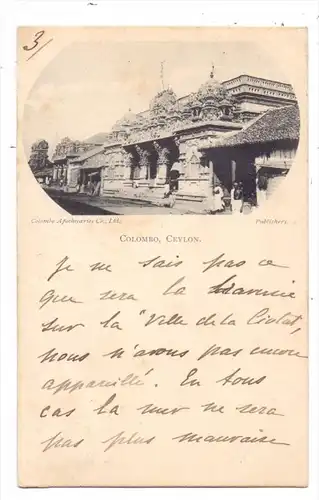 3/
Colombo Apothecaries Co., Ltd.,
Publishers.
COLOMBO, CEYLON.
Je ne sais pas ce
que sera la
sur la "Ville de la Ciotat,
nous n'avons pas encore
appareillé. En tous
cas la mer ne sera
pas plus mauvaise